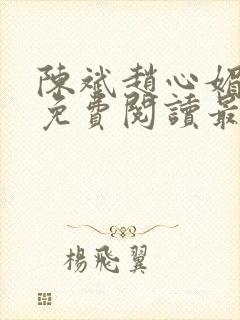 陳斌趙心媚
免費閱讀最
楊飛翼